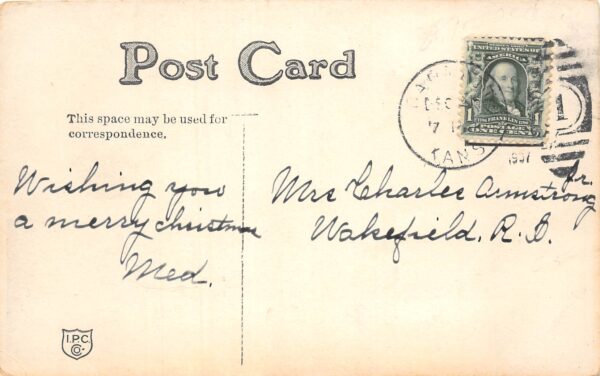 Post Card
This space may be used for
correspondence.
UNITED STATES OF
AMERICA
FRANKLIN
POSTAGE
1 ONE CENT 1
DEC
7
KANS
1907
1
Wishing you
a merry christmas
Med.
Mrs Charles Armstrong Jr.
Wakefield. R. D.
I.P.C.
CO.